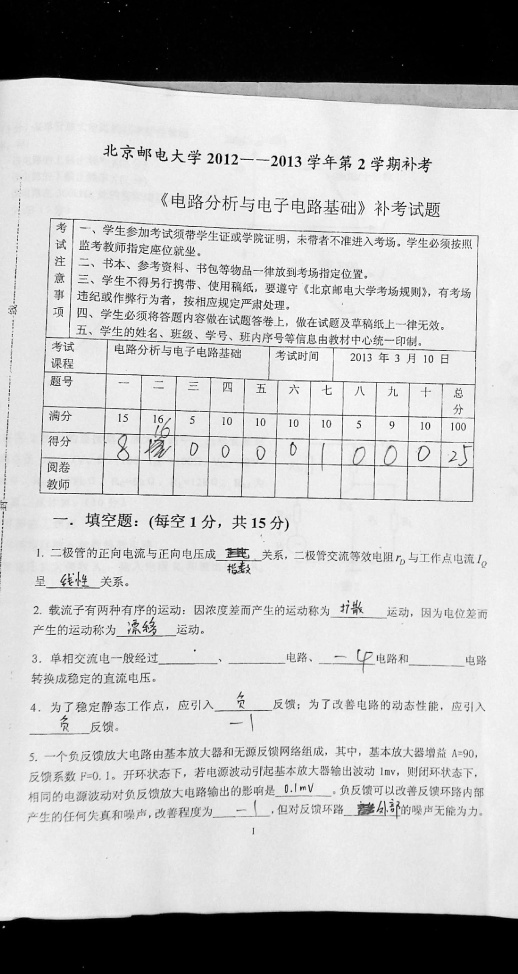 北京邮电大学 2012——2013 学年第 2 学期补考
《电路分析与电子电路基础》补考试题
考试注意事项
一、学生参加考试须带学生证或学院证明，未带者不准进入考场。学生必须按照
监考教师指定座位就坐。
二、书本、参考资料、书包等物品一律放到考场指定位置。
三、学生不得另行携带、使用稿纸，要遵守《北京邮电大学考场规则》，有考场
违纪或作弊行为者，按相应规定严肃处理。
四、学生必须将答题内容做在试题答卷上，做在试题及草稿纸上一律无效。
五、学生的姓名、班级、学号、班内序号等信息由教材中心统一印制。
考试课程 电路分析与电子电路基础 考试时间 2013 年 3 月 10 日
题号 一 二 三 四 五 六 七 八 九 十 总分
满分 15 16 5 10 10 10 10 5 9 10 100
16
得分 8 0 0 0 0 1 0 0 0 25
阅卷教师
一．填空题：(每空 1 分，共 15 分)
1. 二极管的正向电流与正向电压成 指数 关系，二极管交流等效电阻 rD 与工作点电流 IQ
呈 线性 关系。
2. 载流子有两种有序的运动：因浓度差而产生的运动称为 扩散 运动，因为电位差而
产生的运动称为 漂移 运动。
3．单相交流电一般经过 、 电路、 -4 电路和 电路
转换成稳定的直流电压。
4．为了稳定静态工作点，应引入 负 反馈；为了改善电路的动态性能，应引入
负 反馈。 -1
5. 一个负反馈放大电路由基本放大器和无源反馈网络组成，其中，基本放大器增益 A=90，
反馈系数 F=0.1。开环状态下，若电源波动引起基本放大器输出波动 1mv，则闭环状态下，
相同的电源波动对负反馈放大电路输出的影响是 0.1mV 。负反馈可以改善反馈环路内部
产生的任何失真和噪声，改善程度为 -1 ，但对反馈环路 外部 的噪声无能为力。
1